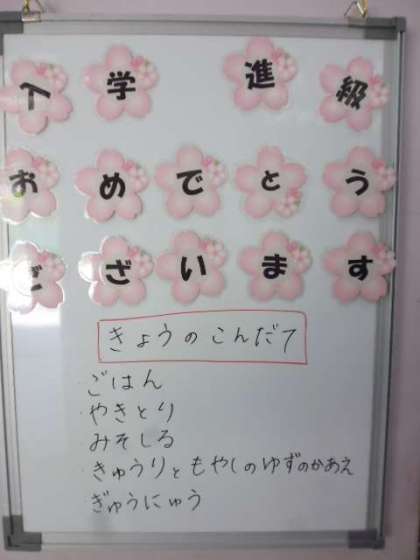 入学進級
おめでとう
ございます
きょうのこんだて
ごはん
やきとり
みそしる
きゅうりともやしのゆずのかあえ
ぎゅうにゅう